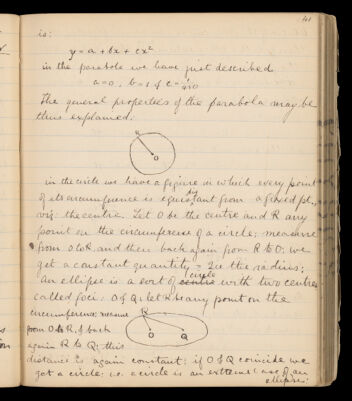 41
is:
y = a + bx + cx²
in the parabola we have just described
a = 0, b = 1 & c = 
The general properties of the parabola may be
thus explained.
R
O
in the circle we have a figure in which every point
of its circumference is equi distant from a fixed pt.,
viz: the centre. Let O be the centre and R any
point on the circumference of a circle; measure
from O to R, and then back again from R to O; we
get a constant quantity = 2ce the radius;
An ellipse is a sort of circle with two centres
called foci: O & Q; let R be any point on the
circumference: measure R
from O to R, & back
O Q
again R to Q; this
distance is again constant: if O & Q coincide we
get a circle; i.e. a circle is an extreme case of an
ellipse: